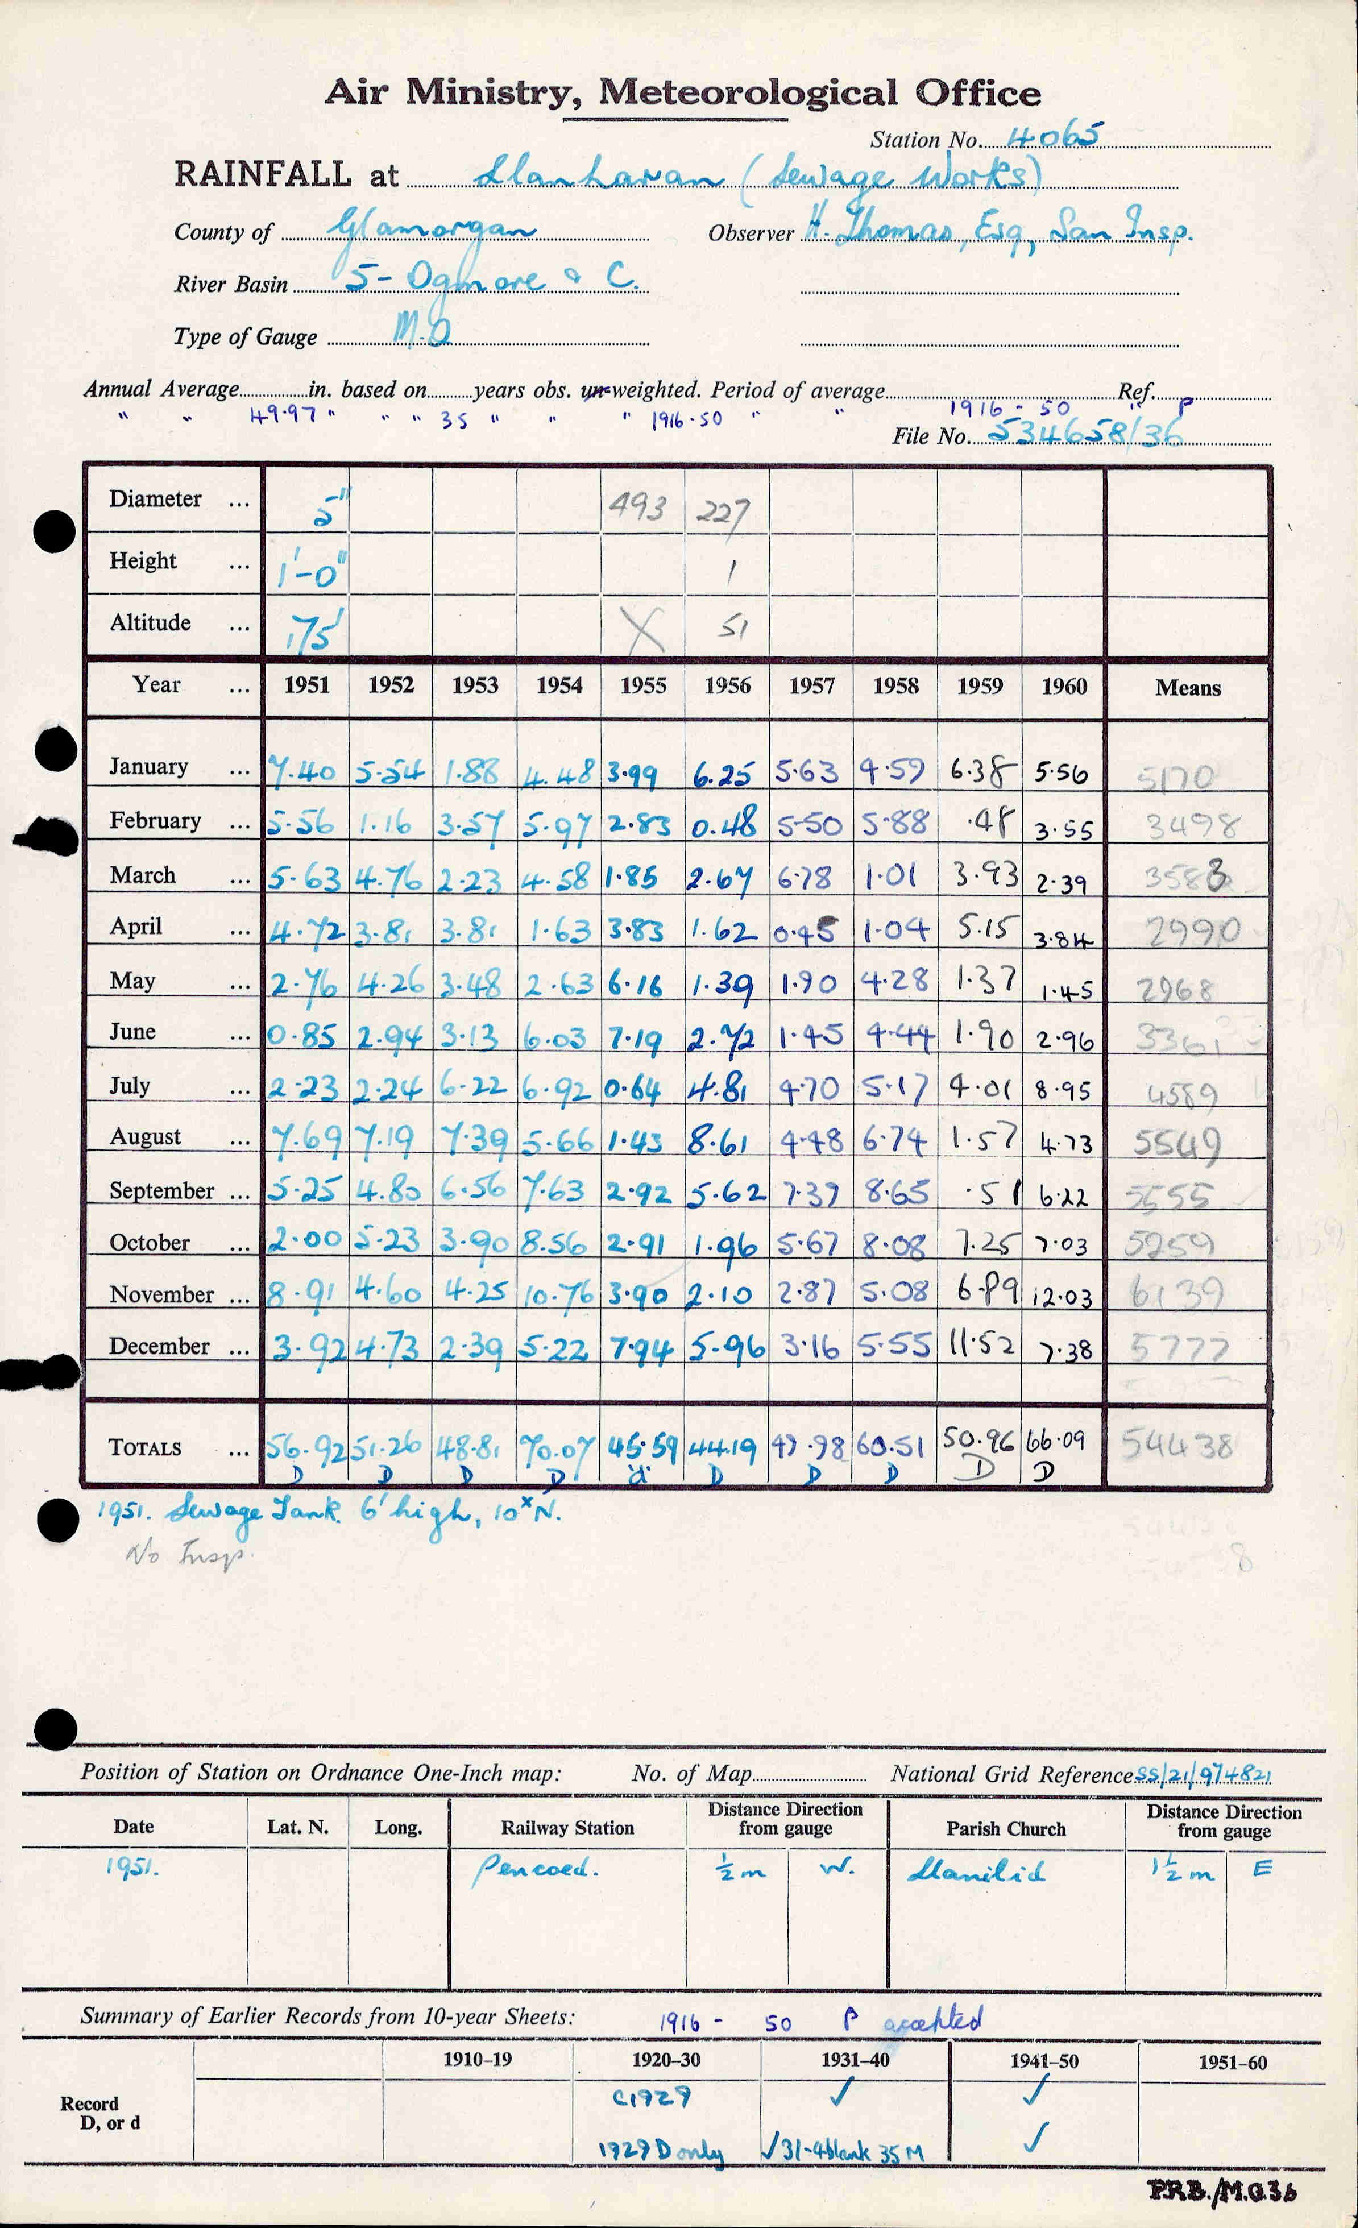 Air Ministry, Meteorological Office
Station No. 4065
RAINFALL at Llanharan (Sewage Works)
County of Glamorgan Observer H. Thomas, Esq, San Insp.
River Basin 5 - Ogmore & C.
Type of Gauge M.O
Annual Average in. based on years obs. un-weighted. Period of average Ref.
" " 49.97 " " " 35 " " " 1916-50 " " 1916 - 50 " P
File No. 534658/36
Diameter ... 5" 493 227
Height ... 1'-0" 1
Altitude ... 175' X 51
Year ... 1951 1952 1953 1954 1955 1956 1957 1958 1959 1960 Means
January ... 7.40 5.54 1.88 4.48 3.99 6.25 5.63 4.59 6.38 5.56 5170
February ... 5.56 1.16 3.57 5.97 2.83 0.48 5.50 5.88 .48 3.55 3498
March ... 5.63 4.76 2.23 4.58 1.85 2.67 6.78 1.01 3.93 2.39 3583
April ... 4.72 3.81 3.81 1.63 3.83 1.62 0.45 1.04 5.15 3.84 2990
May ... 2.76 4.26 3.48 2.63 6.16 1.39 1.90 4.28 1.37 1.45 2968
June ... 0.85 2.94 3.13 6.03 7.19 2.72 1.45 4.44 1.90 2.96 3361
July ... 2.23 2.24 6.22 6.92 0.64 4.81 4.70 5.17 4.01 8.95 4589
August ... 7.69 7.19 7.39 5.66 1.43 8.61 4.48 6.74 1.57 4.73 5549
September ... 5.25 4.80 6.56 7.63 2.92 5.62 7.39 8.65 .51 6.22 5555
October ... 2.00 5.23 3.90 8.56 2.91 1.96 5.67 8.08 7.25 7.03 5259
November ... 8.91 4.60 4.25 10.76 3.90 2.10 2.87 5.08 6.89 12.03 6139
December ... 3.92 4.73 2.39 5.22 7.94 5.96 3.16 5.55 11.52 7.38 5777
TOTALS ... 56.92 51.26 48.81 70.07 45.59 44.19 49.98 60.51 50.96 66.09 54438
D D D D "d" D D D D D
1951. Sewage Tank. 6' high, 10x N.
No Insp.
Position of Station on Ordnance One-Inch map: No. of Map National Grid Reference SS/21/974821
Date Lat. N. Long. Railway Station Distance Direction from gauge Parish Church Distance Direction from gauge
1951. Pencoed. ½ m W. Llanilid 1½ m E
Summary of Earlier Records from 10-year Sheets: 1916 - 50 P accepted
1910–19 1920–30 1931–40 1941–50 1951–60
Record C1929 ✓ ✓
D, or d 1929 D only ✓ 31-4 blank 35 M ✓
P.R.B./M.O.36